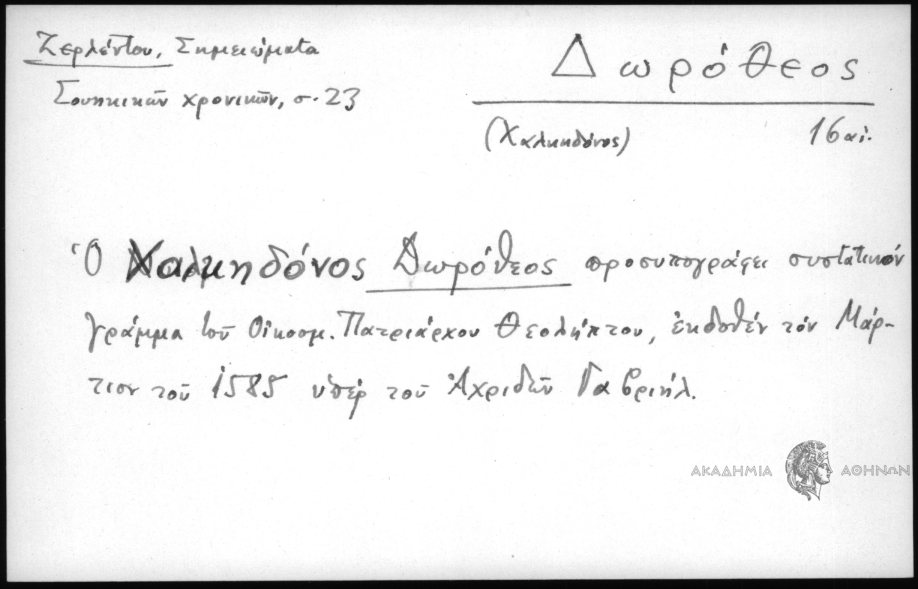 Ζερλέντου, Σημειώματα
Σουηκικῶν χρονικῶν, σ. 23
Δωρόθεος
(Χαλκηδόνος) 16 αἰ.
Ὁ Χαλκηδόνος Δωρόθεος προσυπογράφει συστατικόν
γράμμα τοῦ Οἰκουμ. Πατριάρχου Θεολήπτου, ἐκδοθέν τόν Μάρ-
τιον τοῦ 1585 ὑπέρ τοῦ Ἀχριδῶν Γαβριήλ.
ΑΚΑΔΗΜΙΑ ΑΘΗΝΩΝ